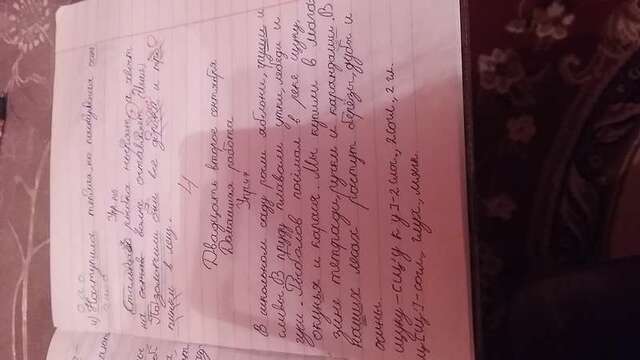 о а о
и) Наступила теплая, но пасмурная
Упр.
Стальная рыбка ныряет, а хвост
на волне оставляет. (Игла)
Позолотили они все деревья и тро
пинки в лесу.
4
Двадцать второе сентября
Домашняя работа
Упр.47
В школьном саду росли яблони, груши и
сливы. В пруду плавали утки, лебеди и
гуси. Рыболов поймал в реке щуку,
окунья и карася. Мы купили в мага
зине тетради, ручки и карандаши. В
наших лесах растут берёзы, дубы и
осины.
щуку – [щ' у к у] – 2 слог., 2 согл., 2 гл.
щ [щ'] – согл., глух., мягк.